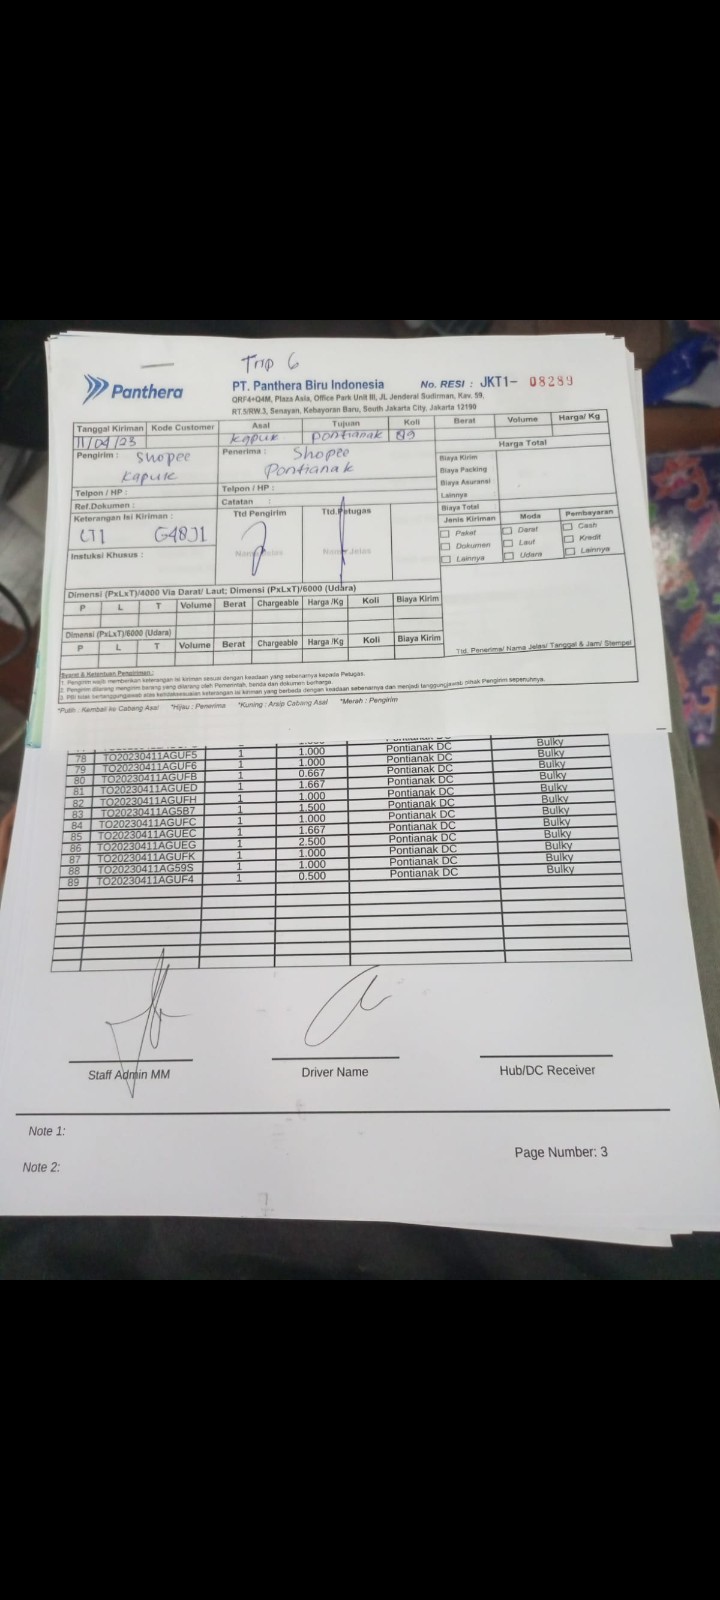 Trip 6
Panthera
PT. Panthera Biru Indonesia
No. RESI : JKT1- 08289
QRF4+Q4M, Plaza Asia, Office Park Unit III, JL Jenderal Sudirman, Kav. 59,
RT.5/RW.3, Senayan, Kebayoran Baru, South Jakarta City, Jakarta 12190
Tanggal Kiriman Kode Customer Asal Tujuan Koli Berat Volume Harga/ Kg
11/04/23 Kapuk Pontianak 89
Pengirim : Shopee Penerima : Shopee Harga Total
Kapuk Pontianak
Biaya Kirim
Biaya Packing
Biaya Asuransi
Lainnya
Biaya Total
Telpon / HP : Telpon / HP :
Ref.Dokumen : Catatan :
Keterangan Isi Kiriman : Ttd Pengirim Ttd.Petugas
Jenis Kiriman Moda Pembayaran
Paket Darat Cash
Dokumen Laut Kredit
Lainnya Udara Lainnya
Instuksi Khusus : Nama Jelas Nama Jelas
Dimensi (PxLxT)/4000 Via Darat/ Laut; Dimensi (PxLxT)/6000 (Udara)
P L T Volume Berat Chargeable Harga /Kg Koli Biaya Kirim
Dimensi (PxLxT)/6000 (Udara)
P L T Volume Berat Chargeable Harga /Kg Koli Biaya Kirim
Ttd. Penerima/ Nama Jelas/ Tanggal & Jam/ Stempel
Syarat & Ketentuan Pengiriman :
1. Pengirim wajib memberikan keterangan isi kiriman sesuai dengan keadaan yang sebenarnya kepada Petugas.
2. Pengirim dilarang mengirim barang yang dilarang oleh Pemerintah, benda dan dokumen berharga.
3. PBI tidak bertanggungjawab atas ketidaksesuaian keterangan isi kiriman yang berbeda dengan keadaan sebenarnya dan menjadi tanggungjawab pihak Pengirim sepenuhnya.
*Putih : Kembali ke Cabang Asal *Hijau : Penerima *Kuning : Arsip Cabang Asal *Merah : Pengirim
78 TO20230411AGUF5 1 1.000 Pontianak DC Bulky
79 TO20230411AGUF6 1 1.000 Pontianak DC Bulky
80 TO20230411AGUFB 1 0.667 Pontianak DC Bulky
81 TO20230411AGUED 1 1.667 Pontianak DC Bulky
82 TO20230411AGUFH 1 1.000 Pontianak DC Bulky
83 TO20230411AG5B7 1 1.500 Pontianak DC Bulky
84 TO20230411AGUFC 1 1.000 Pontianak DC Bulky
85 TO20230411AGUEC 1 1.667 Pontianak DC Bulky
86 TO20230411AGUEG 1 2.500 Pontianak DC Bulky
87 TO20230411AGUFK 1 1.000 Pontianak DC Bulky
88 TO20230411AG59S 1 1.000 Pontianak DC Bulky
89 TO20230411AGUF4 1 0.500 Pontianak DC Bulky
Staff Admin MM
Driver Name
Hub/DC Receiver
Note 1:
Page Number: 3
Note 2: